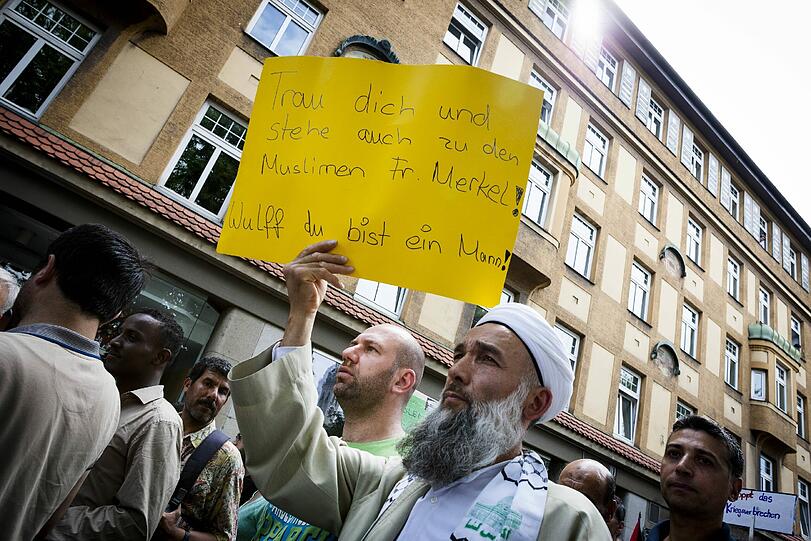 Trau dich und
stehe auch zu den
Muslimen Fr. Merkel!
Wulff du bist ein Mann!
ppt das
Kriegsverbrechen